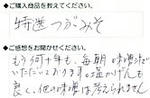 ◆ご購入商品を教えてください。
特選つがみそ
◆ご感想をお聞かせください。
もう何十年も、毎朝味噌汁
いただいております。塩かげんも
良く、他の味噌は考えられません